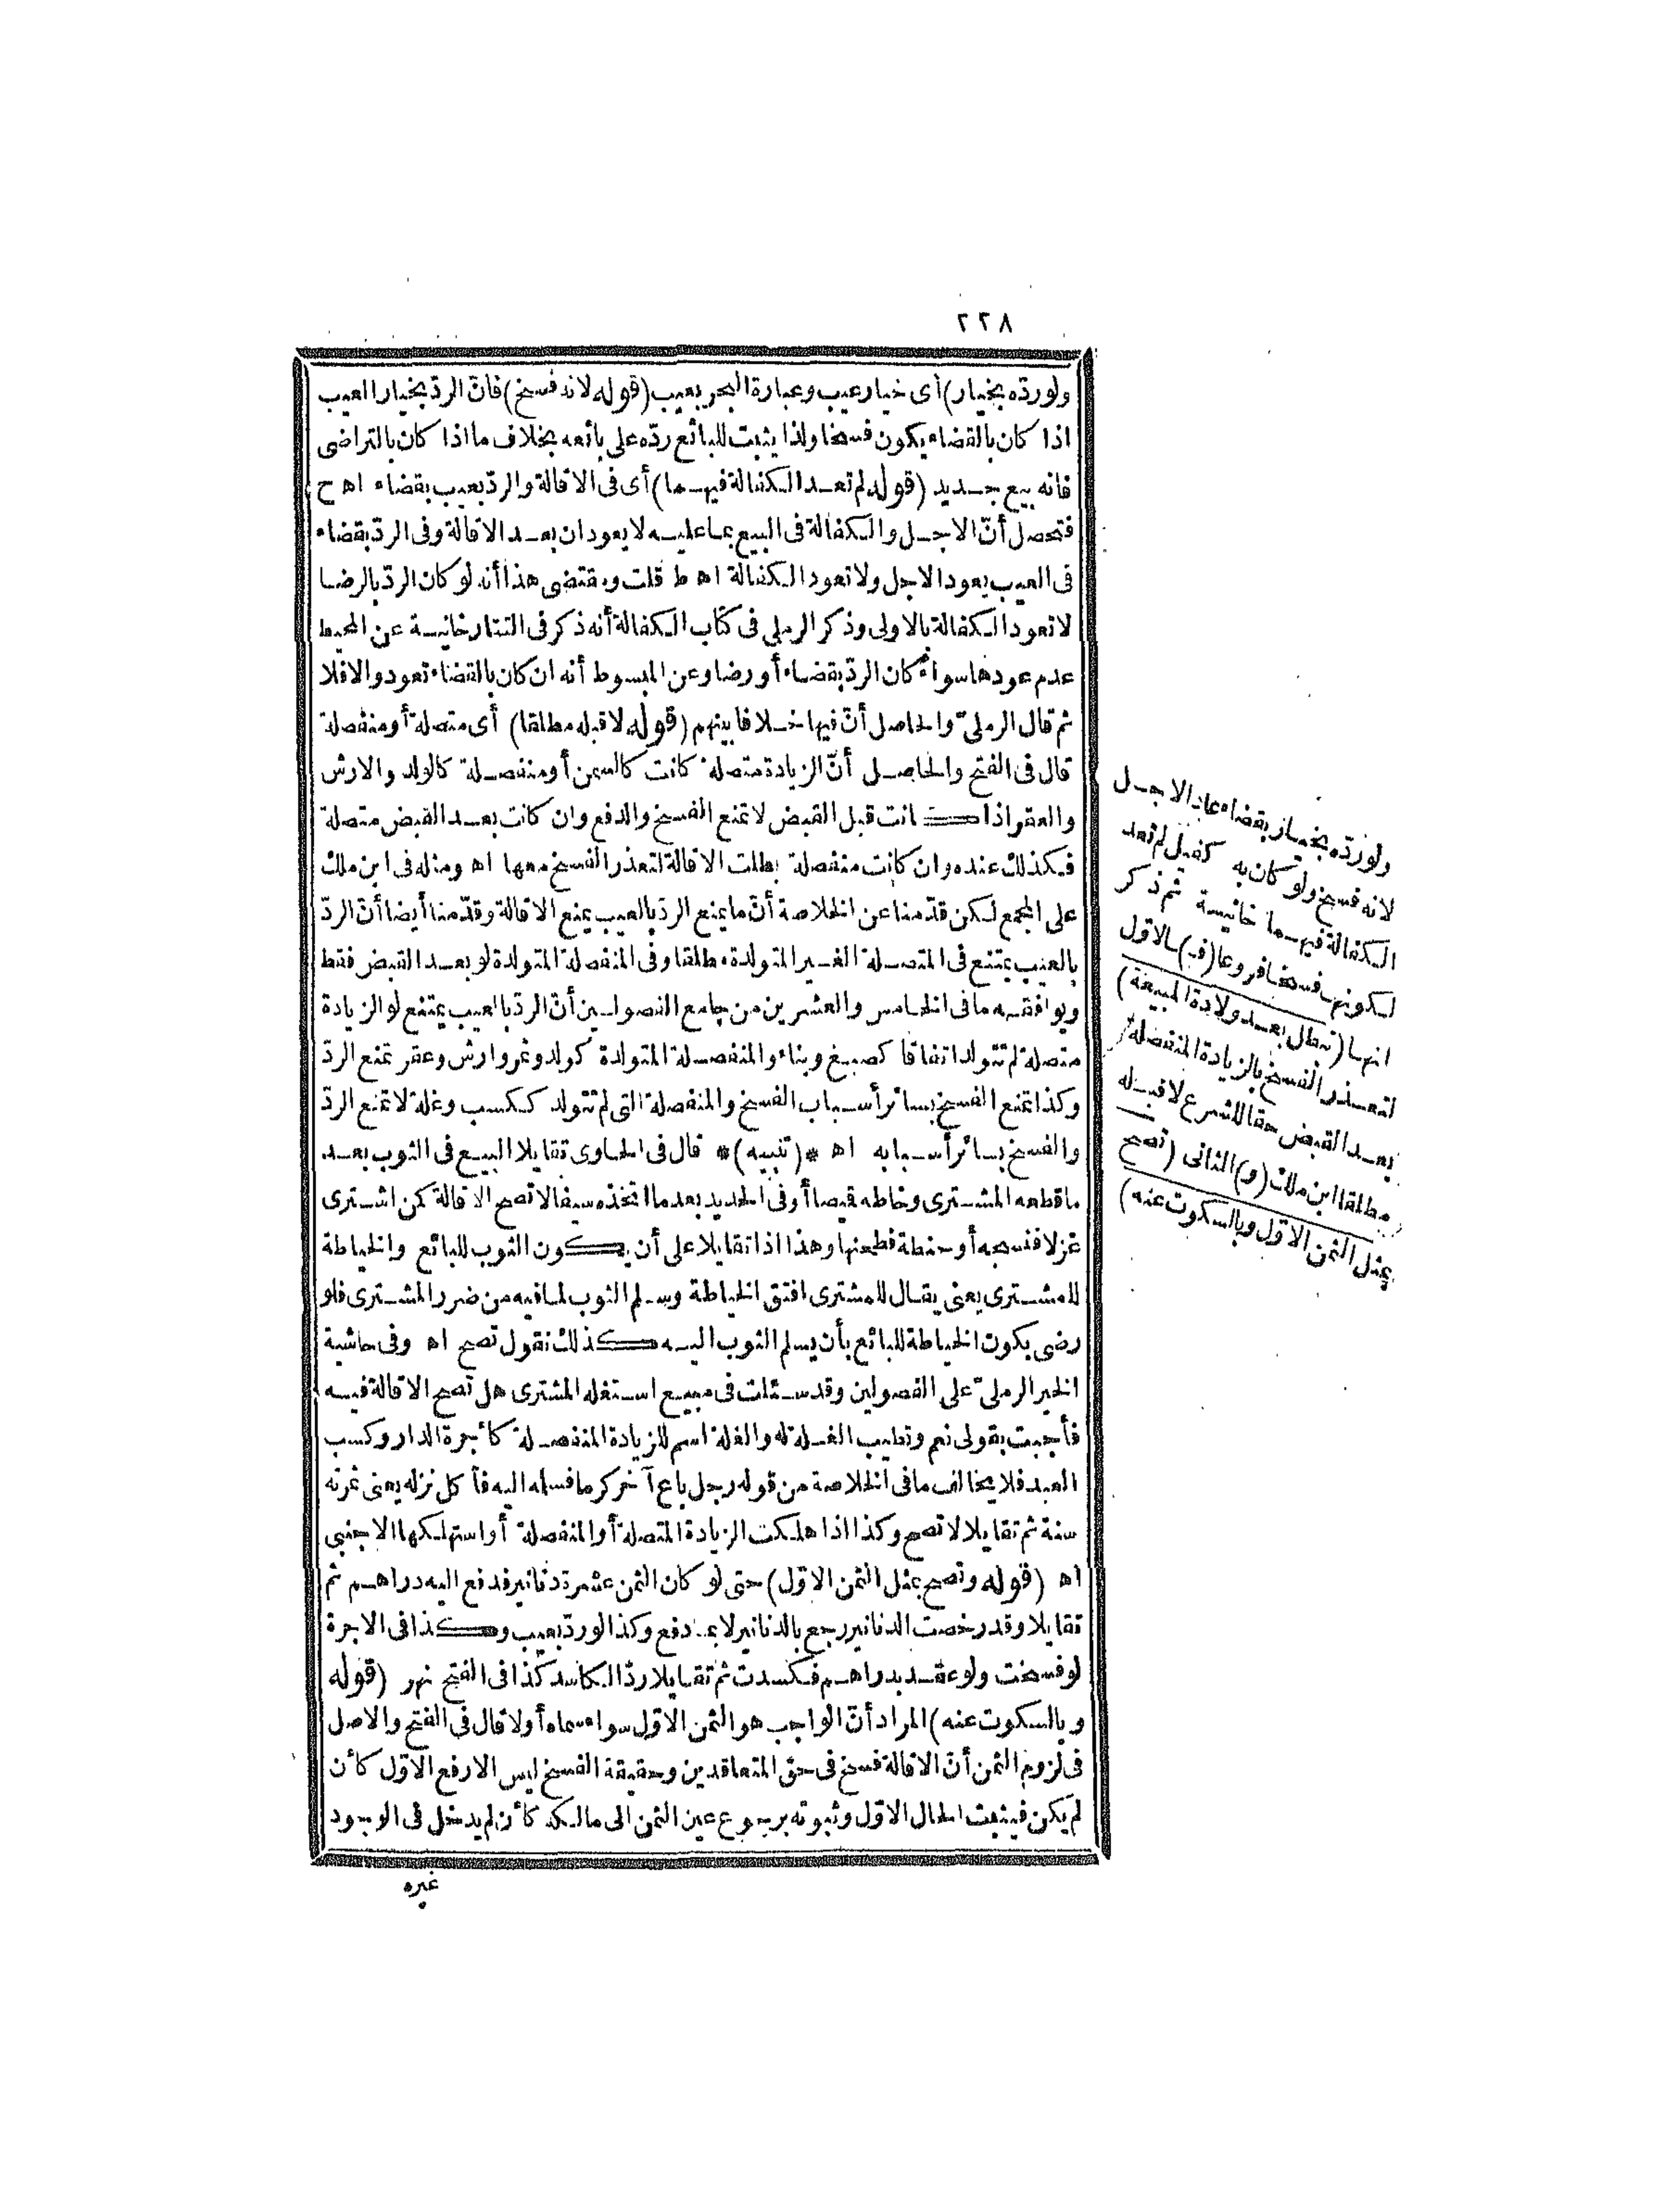 ٢٢٨
ولو ردّه بخيار) أى خيار عيب وعبارة البحر بعيب (قوله لانه فسخ) فانّ الردّ بخيار العيب
اذا كان بالقضاء يكون فسخا ولذا يثبت للبائع ردّه على بائعه بخلاف ما اذا كان بالتراضى
فانه بيع جديد (قوله لم تعد الكفالة فيهما) أى فى الاقالة والردّ بعيب بقضاء اه ح
فتحصل أنّ الاجل والكفالة فى البيع بما عليه لا يعودان بعد الاقالة وفى الردّ بقضاء
فى العيب يعود الاجل ولا تعود الكفالة اه ط قلت ومقتضى هذا أنه لو كان الردّ بالرضا
لا تعود الكفالة بالاولى وذكر الرملى فى كتاب الكفالة أنه ذكر فى التتارخانية عن المحيط
عدم عودها سواء كان الردّ بقضاء أو رضا وعن المبسوط أنه ان كان بالقضاء تعود والا فلا
ثم قال الرملىّ والحاصل أنّ فيها خلافا بينهم (قوله لا قبله مطلقا) أى متصلة أو منفصلة
قال فى الفتح والحاصل أنّ الزيادة متصلة كانت كالسمن أو منفصلة كالولد والارش
والعقر اذا كانت قبل القبض لا تمنع الفسخ والدفع وان كانت بعد القبض متصلة
فكذلك عنده وان كانت منفصلة بطلت الاقالة لتعذر الفسخ معها اه ومثله فى ابن ملك
على المجمع لكن قدّمنا عن الخلاصة أنّ ما يمنع الردّ بالعيب يمنع الاقالة وقدّمنا أيضا أنّ الردّ
بالعيب يمتنع فى المتصلة الغير المتولدة مطلقا وفى المنفصلة المتولدة لو بعد القبض فقط
ويوافقه ما فى الخامس والعشرين من جامع الفصولين أنّ الردّ بالعيب يمتنع لو الزيادة
متصلة لم تتولد اتفاقا كصبغ وبناء والمنفصلة المتولدة كولد وثمر وارش وعقر تمنع الردّ
وكذا تمنع الفسخ بسائر أسباب الفسخ والمنفصلة التى لم تتولد ككسب وغلة لا تمنع الردّ
والفسخ بسائر أسبابه اه *(تنبيه)* قال فى الحاوى تقايلا البيع فى الثوب بعد
ما قطعه المشترى وخاطه قميصا أو فى الحديد بعد ما اتخذه سيفا لا تصح الاقالة كمن اشترى
غزلا فنسجه أو حنطة فطحنها وهذا اذا تقايلا على أن يكون الثوب للبائع والخياطة
للمشترى يعنى يقال للمشترى افتق الخياطة وسلم الثوب لما فيه من ضرر المشترى فلو
رضى بكون الخياطة للبائع بأن يسلم الثوب اليه كذلك نقول تصح اه وفى حاشية
الخير الرملىّ على الفصولين وقد سئلت فى مبيع استغله المشترى هل تصح الاقالة فيه
فأجبت بقولى نعم وتطيب الغلة له والغلة اسم للزيادة المنفصلة كاجرة الدار وكسب
العبد فلا يخالف ما فى الخلاصة من قوله رجل باع آخر كرما فسلمه اليه فأكل نزله يعنى ثمرته
سنة ثم تقايلا لا تصح وكذا اذا هلكت الزيادة المتصلة أو المنفصلة أو استهلكها الاجنبى
اه (قوله وتصح بمثل الثمن الاوّل) حتى لو كان الثمن عشرة دنانير فدفع اليه دراهم ثم
تقايلا وقد رخصت الدنانير رجع بالدنانير لا بما دفع وكذا لو ردّ بعيب وكذا فى الاجرة
لو فسخت ولو عقد بدراهم فكسدت ثم تقايلا ردّ الكاسد كذا فى الفتح نهر (قوله
وبالسكوت عنه) المراد أنّ الواجب هو الثمن الاوّل سواء سماه أو لا قال فى الفتح والاصل
فى لزوم الثمن أنّ الاقالة فسخ فى حق المتعاقدين وحقيقة الفسخ ليس الا رفع الاوّل كأن
لم يكن فيثبت الحال الاوّل وثبوته برجوع عين الثمن الى مالكه كأن لم يدخل فى الوجود
غيره
ولو ردّه بخيار بقضاء عاد الاجل
لانه فسخ ولو كان به كفيل لم تعد
الكفالة فيهما خانية ثم ذكر
لكونها فسخا فروعا (ف) بالاوّل
انها (تبطل بعد ولادة المبيعة)
لتعذر الفسخ بالزيادة المنفصلة
بعد القبض حقا للشرع لا قبله
مطلقا ابن ملك (و) الثانى (تصح
بمثل الثمن الاوّل وبالسكوت عنه)